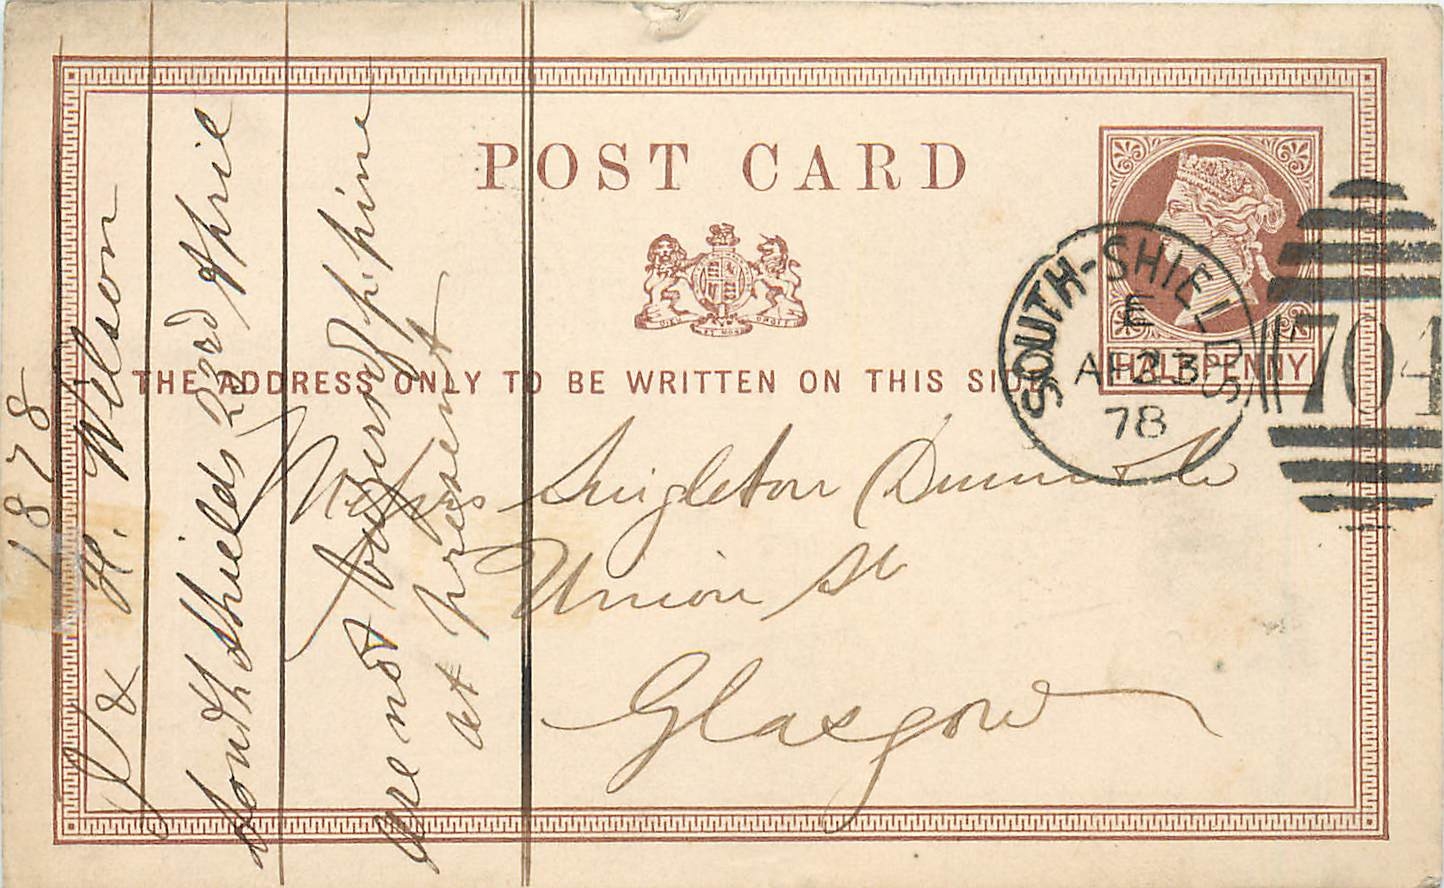 POST CARD
DIEU ET MON DROIT
THE ADDRESS ONLY TO BE WRITTEN ON THIS SIDE
HALFPENNY
SOUTH-SHIELDS
E
AP 23
78
704
Messrs Singleton Dunn & Co
Union St
Glasgow
1878
J & H. Wilson
South Shields 23rd April
are not
at present